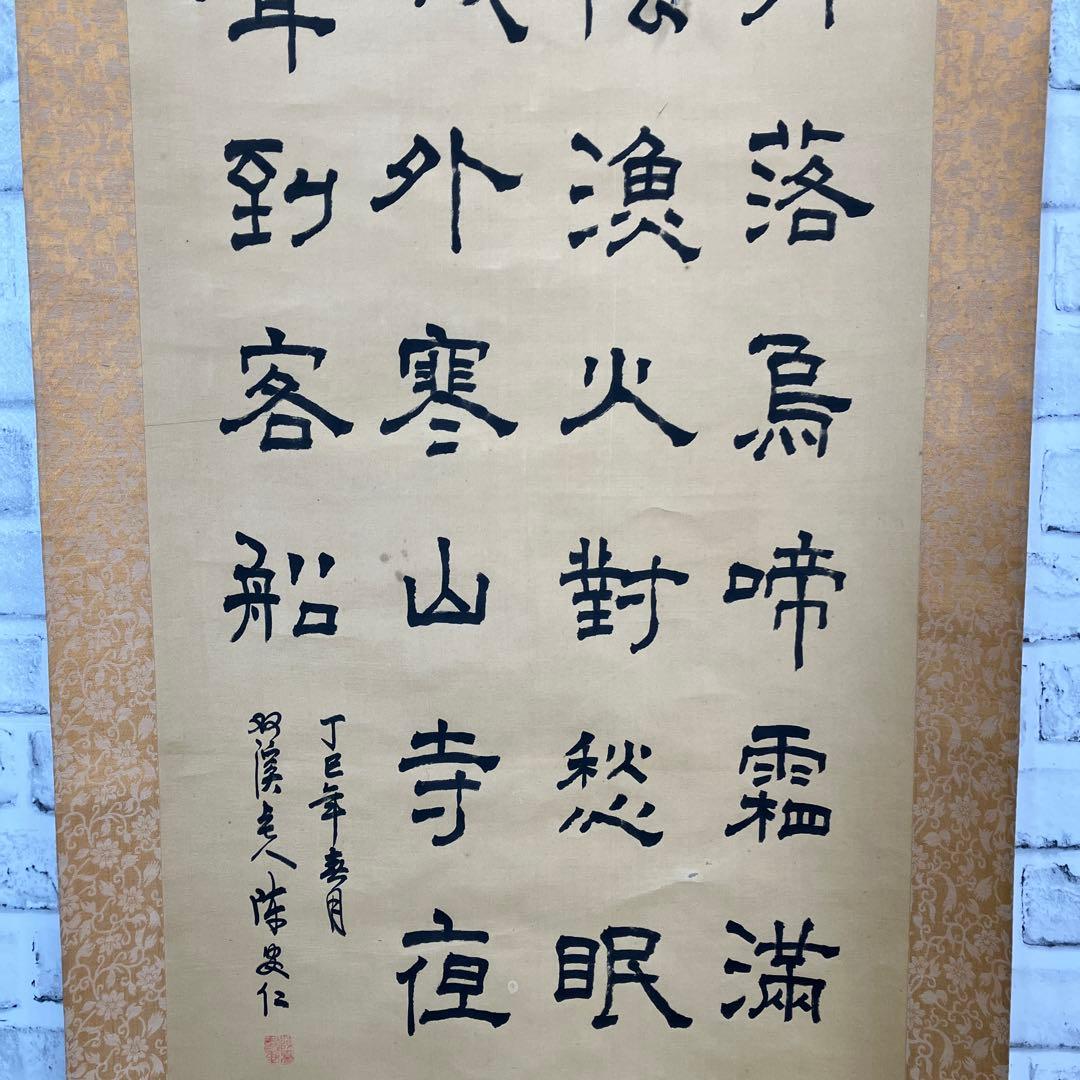 落烏啼霜滿
漁火對愁眠
外寒山寺亱
到客船
丁巳年春月
双溪老人陳仁